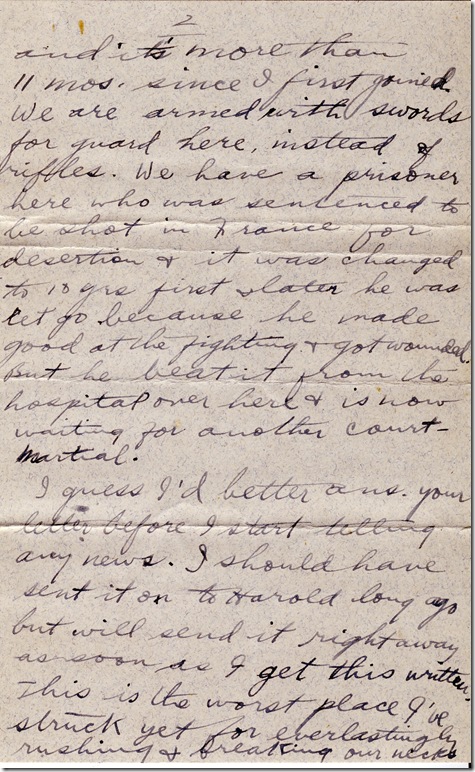 2
and it's more than
11 mos. since I first joined.
We are armed with swords
for guard here, instead of
riffles. We have a prisoner
here who was sentenced to
be shot in France for
desertion & it was changed
to 10 yrs first & later he was
let go because he made
good at the fighting & got wounded.
But he beat it from the
hospital over here & is now
waiting for another court-
martial.
I guess I'd better ans. your
letter before I start telling
any news. I should have
sent it on to Harold long ago
but will send it right away
as soon as I get this written.
This is the worst place I've
struck yet for everlastingly
rushing & breaking our necks